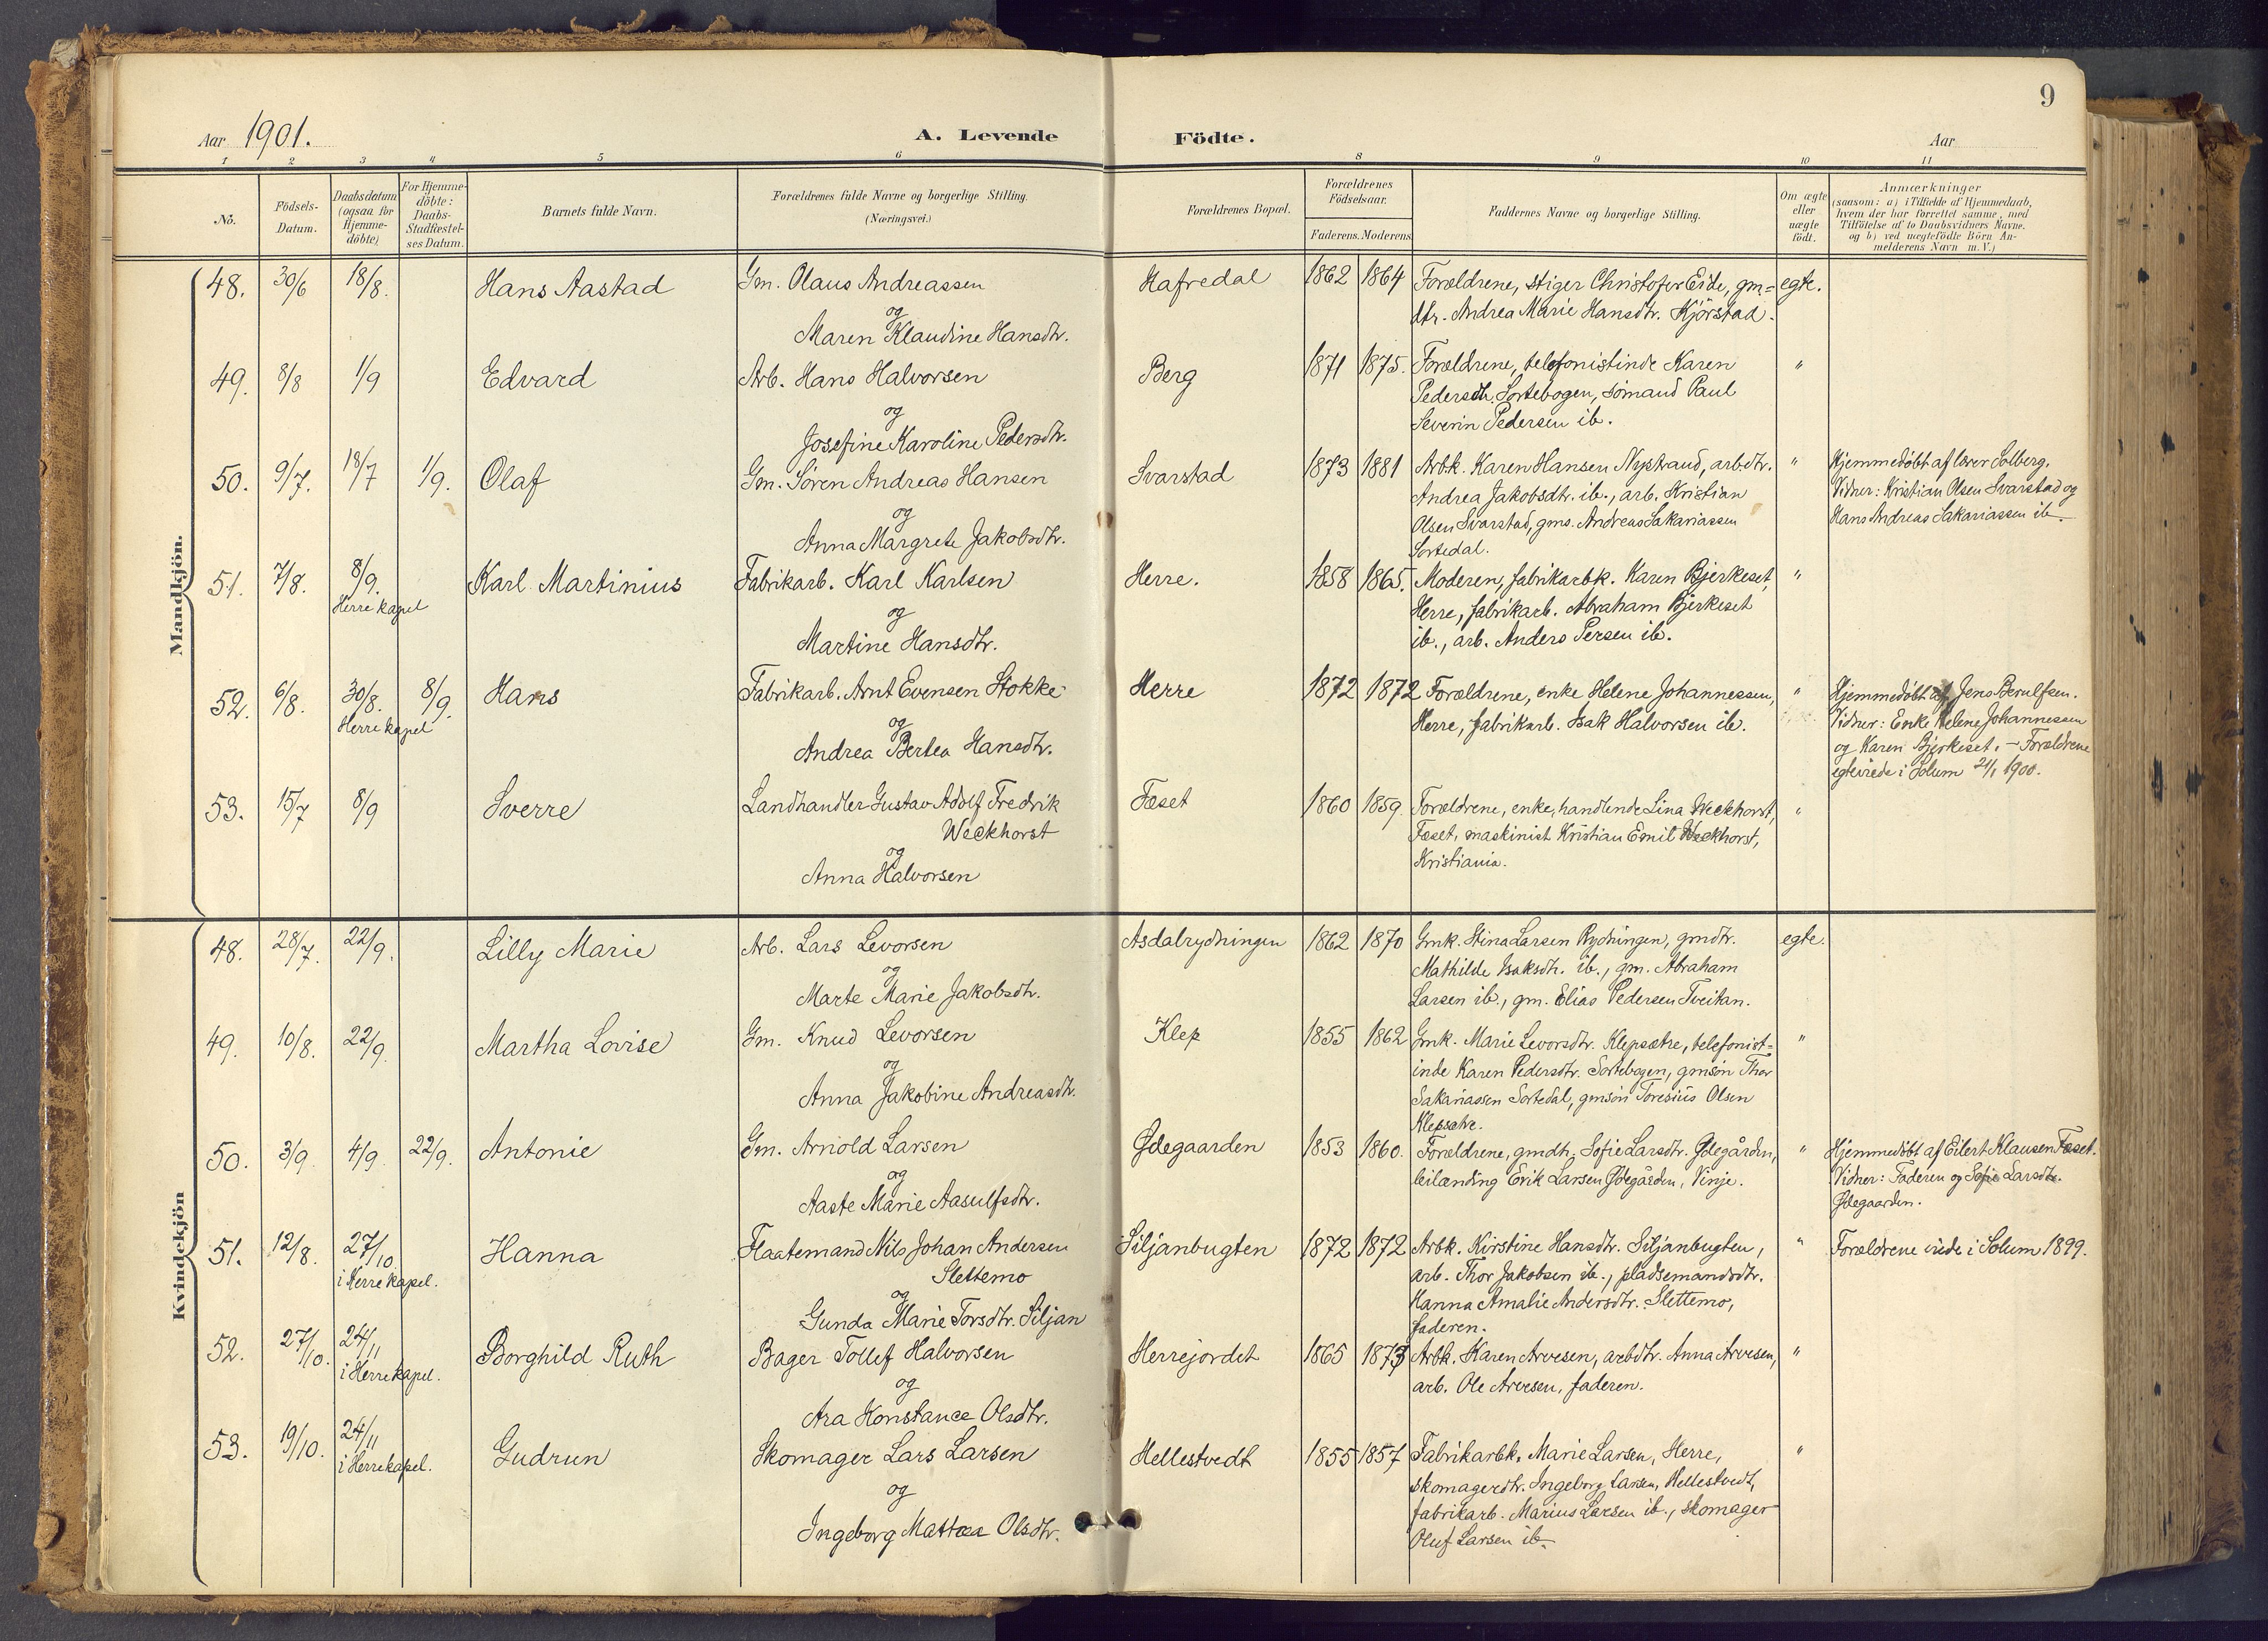 9
Aar 1901.
A. Levende Födte.
Aar
1 2 3 4 5 6 8 9 10 11
Nô.
Födsels-
Datum.
Daabsdatum
(ogsaa for
Hjemme-
döbte)
For Hjemme-
döbte:
Daabs-
Stadfæstel-
ses Datum.
Barnets fulde Navn.
Forældrenes fulde Navne og borgerlige Stilling.
(Næringsvei.)
Forældrenes Bopæl.
Forældrenes
Födselsaar.
Faderens. Moderens
Faddernes Navne og borgerlige Stilling.
Om ægte
eller
uægte
födt.
Anmærkninger
(saasom: a) i Tilfælde af Hjemmedaab,
hvem der har forrettet samme, med
Tilföielse af to Daabsvidners Navne.
og b) ved uægtefödte Börn An-
melderens Navn m. V.)
Mandkjön.
48. 30/6 18/8. Hans Aastad
Gm. Olaus Andreassen
og
Maren Klaudine Hansdtr.
Hafredal 1862 1864
Forældrene, stiger Christofer Eide, gm=
dtr. Andrea Marie Hansdtr. Kjörstad.
egte.
49. 8/8 1/9 Edvard
Arb. Hans Halvorsen
og
Josefine Karoline Pedersdtr.
Berg 1871 1875.
Forældrene, telefonistinde Karen
Pedersdtr. Sortebogen, sömand Paul
Severin Pedersen ib.
"
50. 9/7. 18/7 1/9. Olaf
Gm. Sören Andreas Hansen
og
Anna Margrete Jakobsdtr.
Svarstad 1873 1881
Arbk. Karen Hansen Nystrand, arbdtr.
Andrea Jakobsdtr. ib., arb. Kristian
Olsen Svarstad, gms. Andreas Sakariassen
Sortedal.
"
Hjemmedöbt af lærer Solberg.
Vidner: Kristian Olsen Svarstad og
Hans Andreas Sakariassen ib.
51. 7/8. 8/9.
Herre kapel
Karl Martinius
Fabrikarb. Karl Karlsen
og
Martine Hansdtr.
Herre. 1858 1865.
Moderen, fabrikarbk. Karen Bjerkeset,
Herre, fabrikarb. Abraham Bjerkeset
ib., arb. Anders Persen ib.
"
52. 6/8. 30/8. 8/9.
Herre kapel
Hans
Fabrikarb. Arnt Evensen Stokke
og
Andrea Bertea Hansdtr.
Herre 1872 1872
Forældrene, enke Helene Johannessen,
Herre, fabrikarb. Isak Halvorsen ib.
"
Hjemmedöbt af Jens Berulfsen.
Vidner: Enke Helene Johannessen
og Karen Bjerkeset. - Forældrene
egteviede i Solum 21/1 1900.
53. 15/7 8/9 Sverre
Landhandler Gustav Adolf Fredrik
Weckhorst
og
Anna Halvorsen
Fæset 1860 1859.
Forældrene, enke, handlende Lina Weckhorst,
Fæset, maskinist Kristian Emil Weckhorst,
Kristiania.
"
Kvindekjön
48. 28/7. 22/9. Lilly Marie
Arb. Lars Levorsen
og
Marte Marie Jakobsdtr.
Asdalrydningen 1862 1870
Gmk. Stina Larsen Rydningen, gmdtr.
Mathilde Isaksdtr. ib., gm. Abraham
Larsen ib., gm. Elias Pedersen Tveitan.
egte.
49. 10/8. 22/9. Martha Lovise
Gm. Knud Levorsen
og
Anna Jakobine Andreasdtr.
Klep 1855 1862
Gmk. Marie Levorsdtr. Klepsætre, telefonist=
inde Karen Pedersdtr. Sortebogen, gmsön Thor
Sakariassen Sortedal, gmsön Toresius Olsen
Klepsætre.
"
50. 3/9 4/9 22/9. Antonie
Gm. Arnold Larsen
og
Aaste Marie Aasulfsdtr.
Ødegaarden 1853 1860.
Forældrene, gmdtr. Sofie Larsdtr. Ødegården,
leilænding Erik Larsen Ødegården, Vinje.
"
Hjemmedöbt af Eilert Klausen Fæset.
Vidner: Faderen og Sofie Larsdtr.
Ødegaarden.
51. 12/8. 27/10
i Herre kapel.
Hanna
Flaatemand Nils Johan Andersen
Slettemo
og
Gunda Marie Torsdtr. Siljan
Siljanbugten 1872 1872
Arbk. Kirstine Hansdtr. Siljanbugten,
arb. Thor Jakobsen ib., pladsemandsdtr.
Hanna Amalie Andersdtr. Slettemo,
faderen.
"
Forældrene viede i Solum 1899.
52. 27/10. 24/11
i Herre kapel.
Borghild Ruth
Bager Tollef Halvorsen
og
Ara Konstance Olsdtr.
Herrejordet 1865 1873
Arbk. Karen Arvesen, arbdtr. Anna Arvesen,
arb. Ole Arvesen, faderen.
"
53. 19/10. 24/11
i Herre kapel.
Gudrun
Skomager Lars Larsen
og
Ingeborg Mattea Olsdtr.
Hellestvedt 1855 1857
Fabrikarbk. Marie Larsen, Herre,
skomagerdtr. Ingeborg Larsen, Hellestvedt,
fabrikarb. Marius Larsen ib., skomager
Oluf Larsen ib.
"